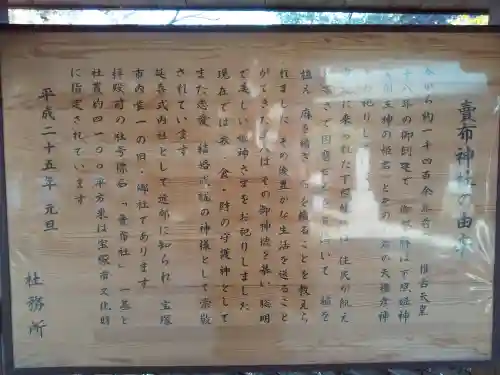 賣布神社の由来
今から約一千四百余年前 推古天皇
十八年の御創建で 御祭神は下照姫神
と
の天稚彦神
は 住民が飢え
寒さで困
稲を
植え 麻を紡ぎ 布を織ることを教えら
れました その後豊かな生活を送ること
ができた人々はその御神徳を慕い 聡明
で美しい姫神さまをお祀りしました
現在では衣・食・財の守護神として
また恋愛 結婚成就の神様として崇敬
されています
延喜式内社として近郷に知られ 宝塚
市内唯一の旧・郷社であります
拝殿前の社号標石「賣布社」一基と
社叢約四一〇〇平方米は宝塚市文化財
に指定されています
平成二十五年 元旦
社務所